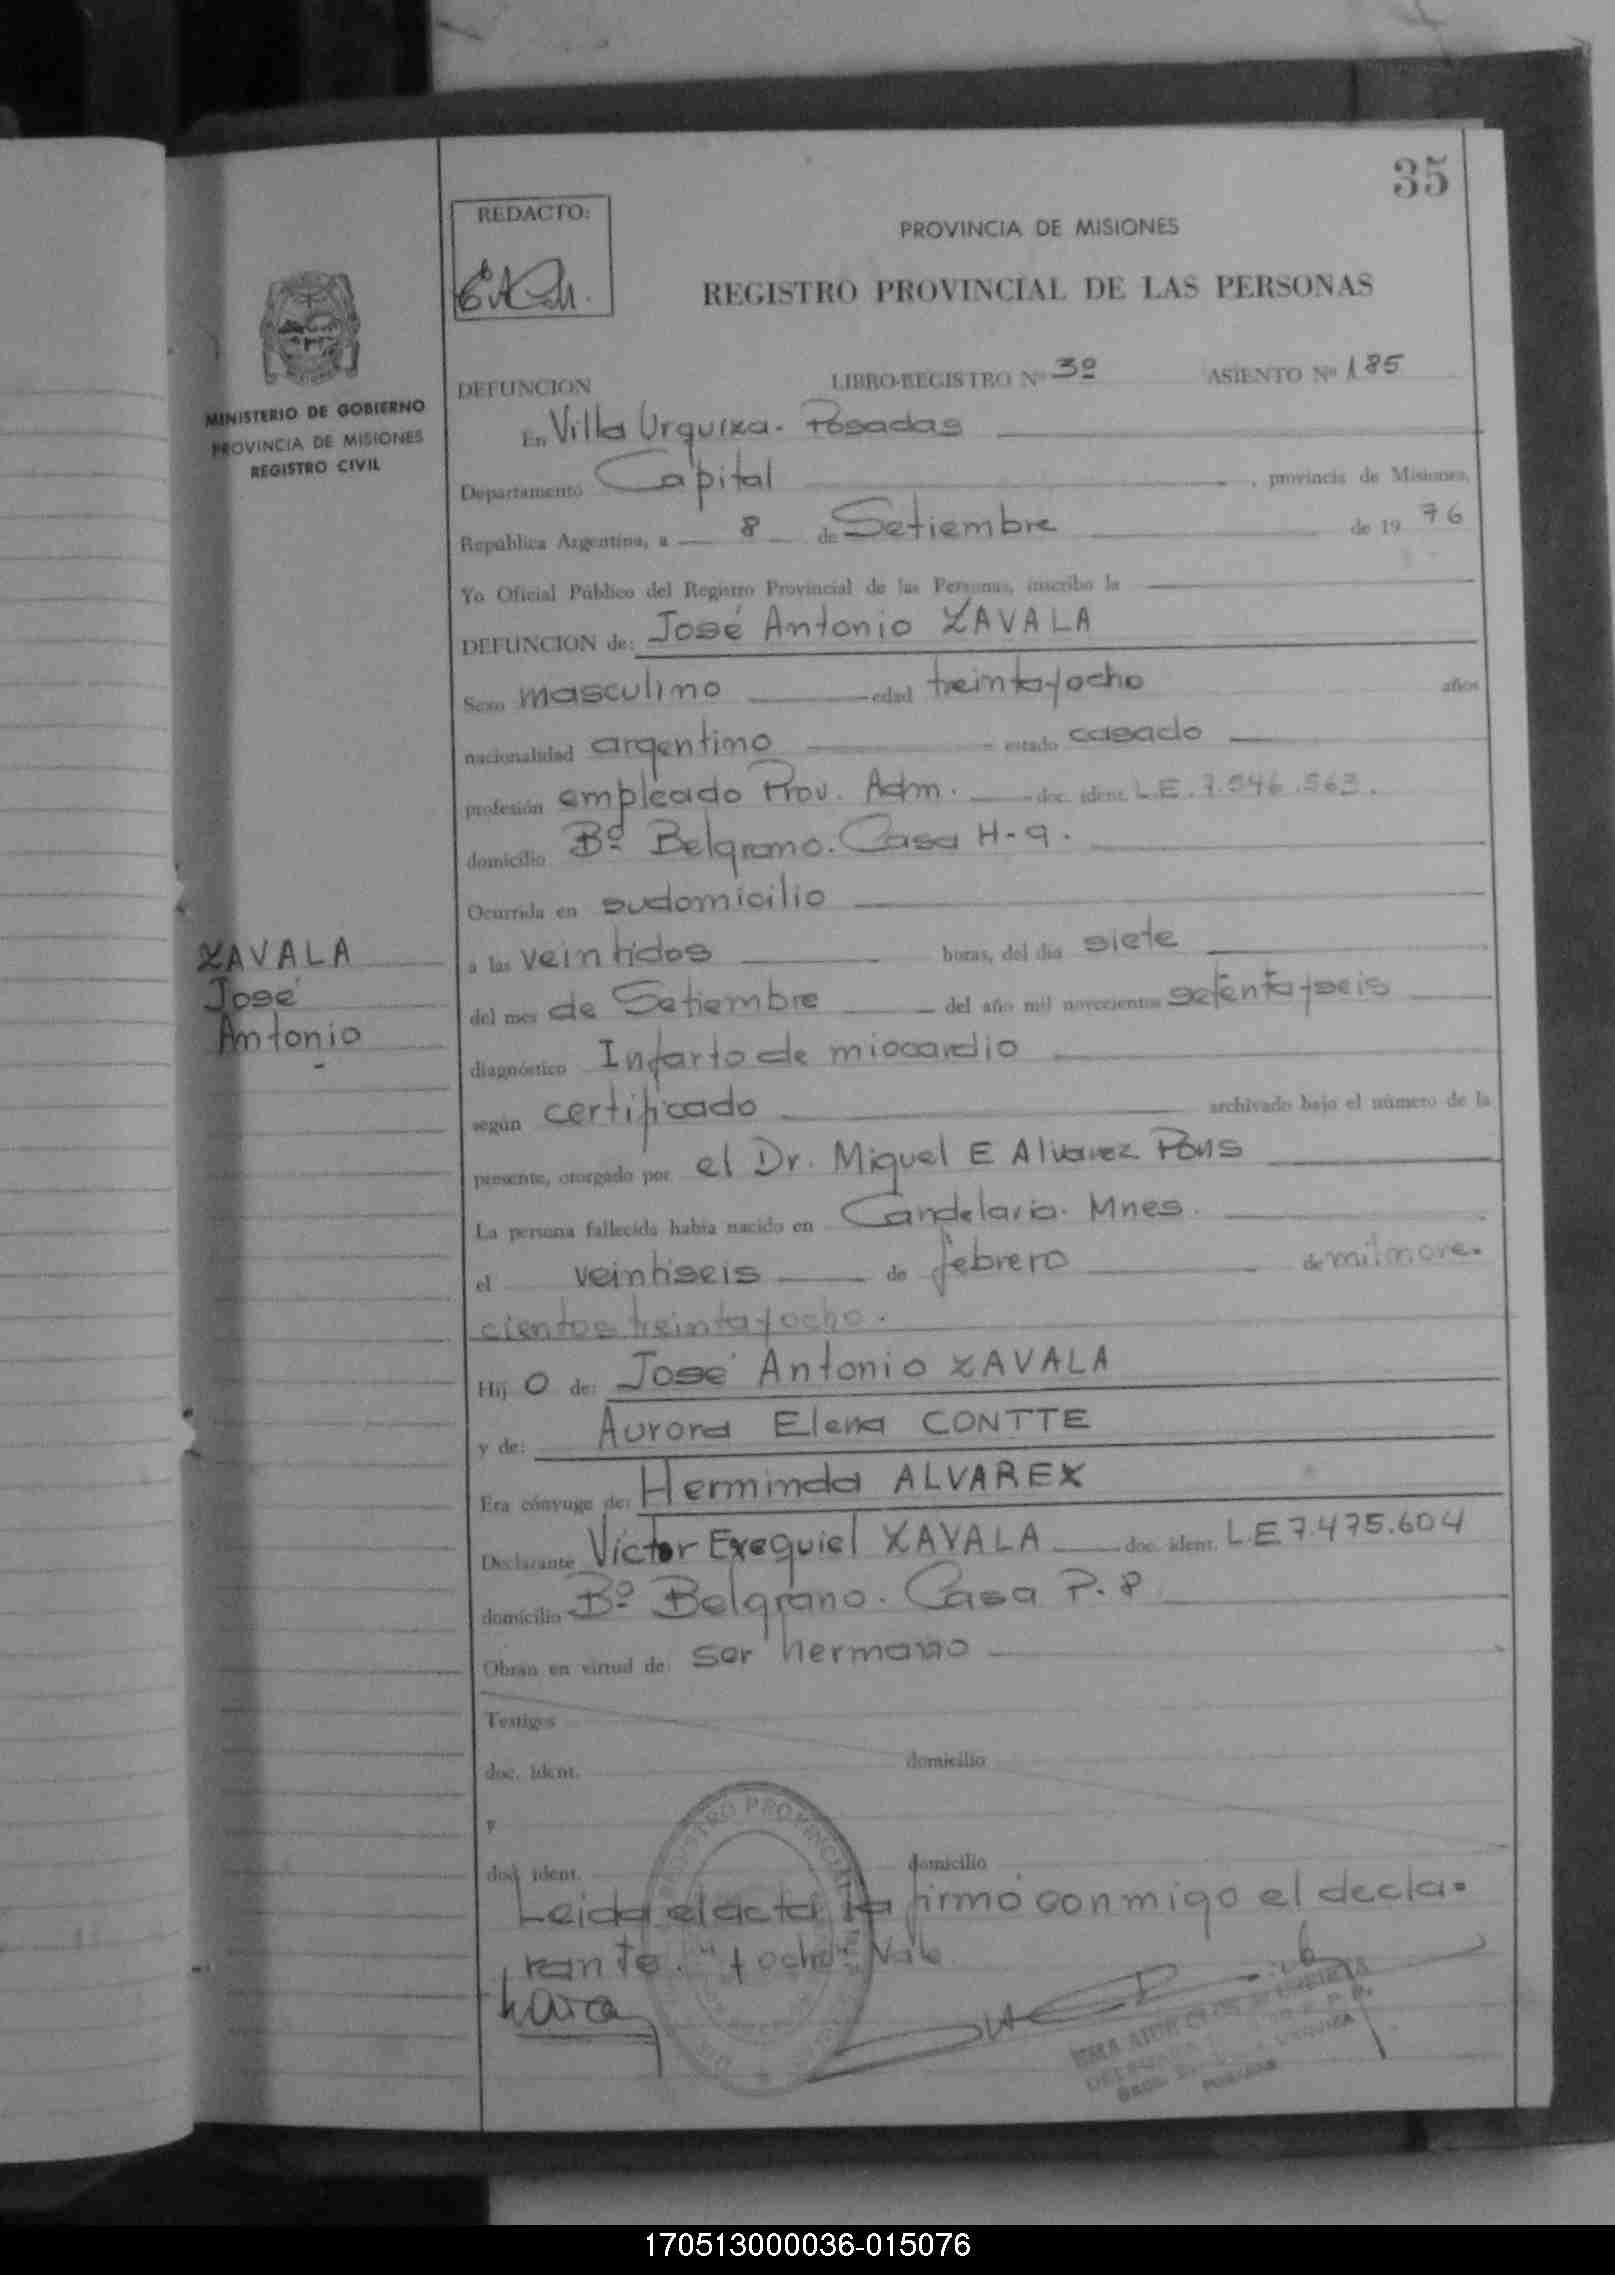 35
REDACTO:
PROVINCIA DE MISIONES
REGISTRO PROVINCIAL DE LAS PERSONAS
MINISTERIO DE GOBIERNO
PROVINCIA DE MISIONES
REGISTRO CIVIL
DEFUNCION LIBRO-REGISTRO Nº 3º ASIENTO Nº 185
En Villa Urquiza. Posadas
Departamento Capital , provincia de Misiones,
República Argentina, a 8 de Setiembre de 19 76
Yo Oficial Público del Registro Provincial de las Personas, inscribo la
DEFUNCION de: José Antonio ZAVALA
Sexo masculino edad treinta y ocho años
nacionalidad argentino estado casado
profesión empleado Prov. Adm. doc. ident. L.E. 7.546.563.
domicilio Bº Belgrano. Casa H-9.
Ocurrida en su domicilio
ZAVALA
José
Antonio
a las veintidos horas, del día siete
del mes de Setiembre del año mil novecientos setenta y seis
diagnóstico Infarto de miocardio
según certificado archivado bajo el número de la
presente, otorgado por el Dr. Miguel E Alvarez Pons
La persona fallecida había nacido en Candelaria. Mnes.
el veintiseis de febrero de mil nove-
cientos treinta y ocho.
Hij o de: José Antonio ZAVALA
y de: Aurora Elena CONTTE
Era cónyuge de: Herminda ALVAREZ
Declarante Víctor Exequiel ZAVALA doc. ident. L.E 7.475.604
domicilio Bº Belgrano. Casa P.8
Obran en virtud de ser hermano
Testigos
doc. ident. domicilio
y
doc. ident. domicilio
Leida el acta la firmó conmigo el decla-
rante. "y ocho" Vale
REGISTRO PROVINCIAL
POSADAS
170513000036-015076